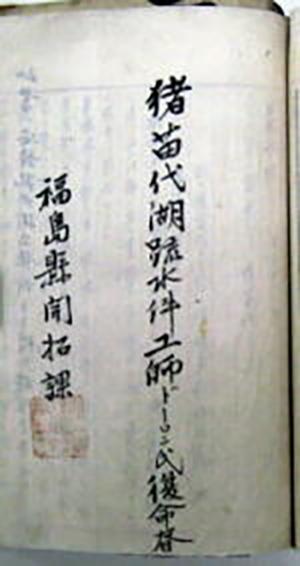 猪苗代湖疏水件工師ドーロン氏復命書
福島縣開拓課